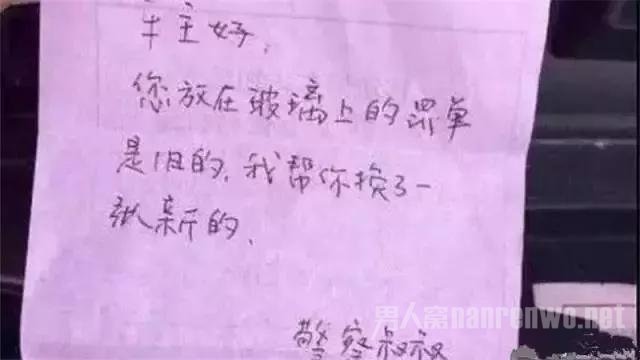 车主好,
您放在玻璃上的罚单
是旧的,我帮你换了一
张新的.
警察叔叔
男人窝nanrenwo.net